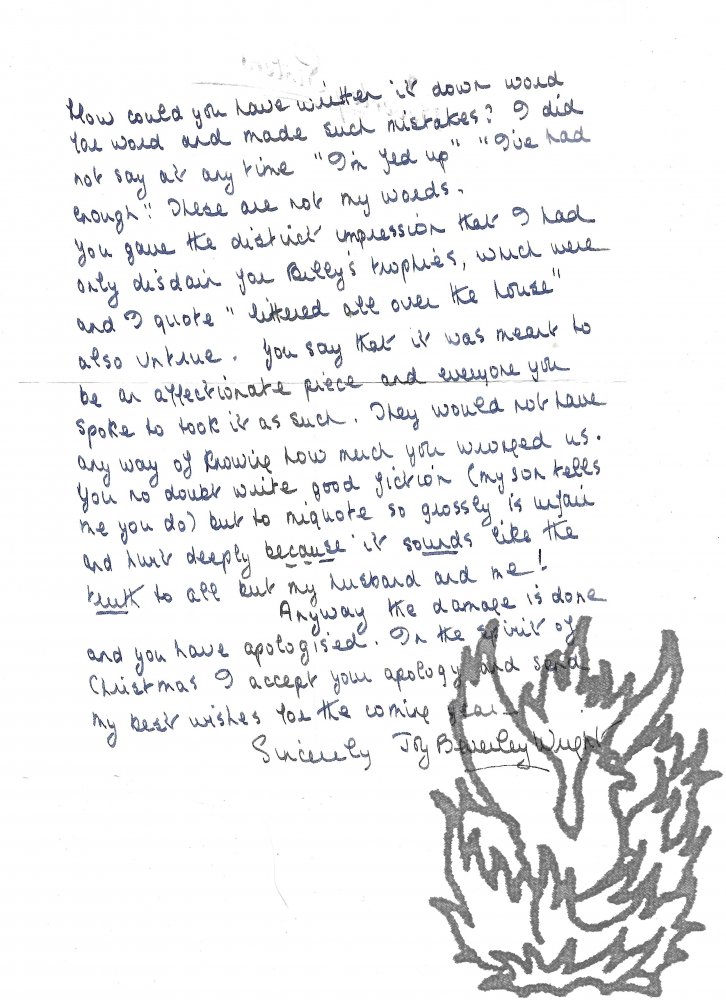 How could you have written it down word
for word and made such mistakes? I did
not say at any time "I'm fed up" "I've had
enough". These are not my words.
You gave the distinct impression that I had
only disdain for Billy's trophies, which were
and I quote "littered all over the house"
also untrue. You say that it was meant to
be an affectionate piece and everyone you
spoke to took it as such. They would not have
any way of knowing how much you wronged us.
You no doubt write good fiction (my son tells
me you do) but to miquote so grossly is unfair
and hurt deeply because it sounds like the
truth to all but my husband and me!
Anyway the damage is done
and you have apologised. In the spirit of
Christmas I accept your apology and send
my best wishes for the coming year
Sincerely Joy Beverley Wright